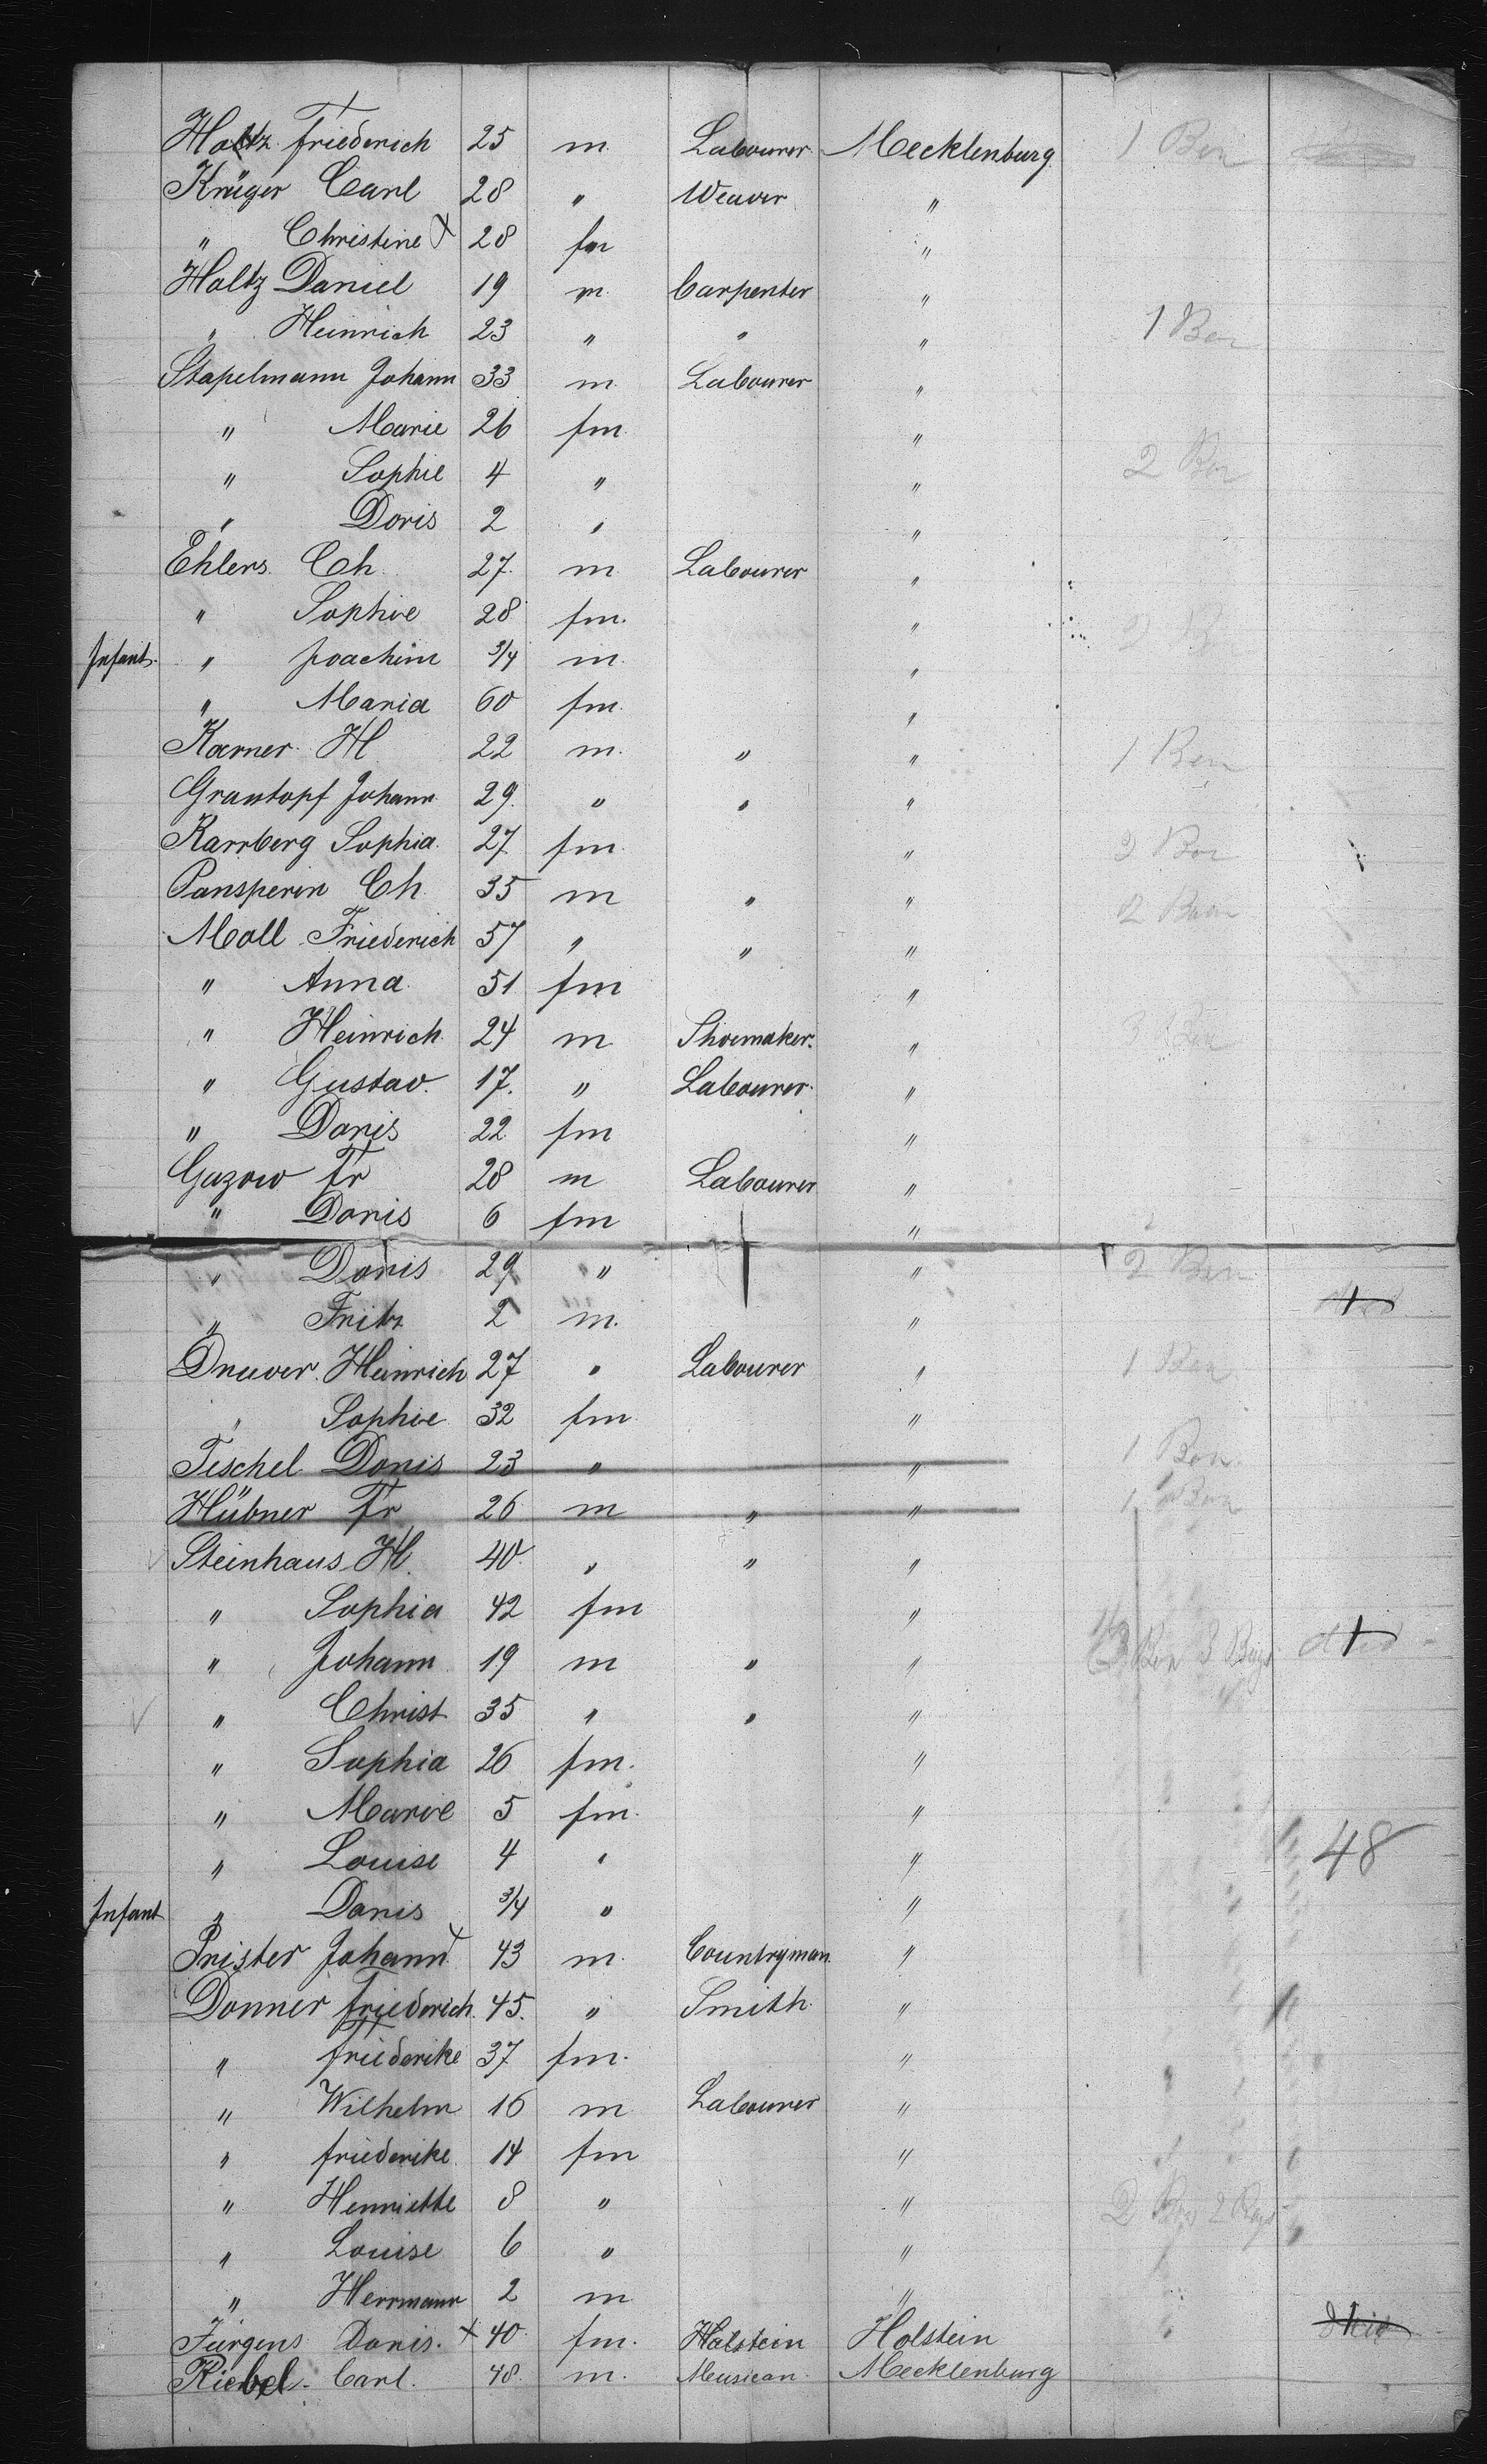 Holtz Friederich 25 m Labourer Mecklenburg 1 Box
Krüger Carl 28 " Weaver "
" Christine × 28 fm "
Holtz Daniel 19 m Carpenter "
" Heinrich 23 " " " 1 Box
Stapelmann Johann 33 m Labourer "
" Marie 26 fm "
" Sophie 4 " " 2 Box
" Doris 2 " "
Ehlers Ch. 27 m Labourer "
" Sophie 28 fm. "
Infant. " Joachim 3/4 m. "
" Maria 60 fm. "
Karner H 22 m. " " 1 Box
Grantopf Johann 29 " " "
Karrberg Sophia 27 fm " 2 Box
Pansperin Ch 35 m " " 2 Box
Moll Friederich 57 " " "
" Anna 51 fm "
" Heinrich 24 m Shoemaker "
" Gustav 17. " Labourer "
" Doris 22 fm "
Gazow Fr 28 m Labourer "
" Doris 6 fm "
" Doris 29 " " 2 Box
" Fritz 2 m. "
Druver Heinrich 27 " Labourer " 1 Box
" Sophie 32 fm "
Teschel Doris 23 " " 1 Box
Hübner Fr 26 m " " 1 Box
Steinhaus H. 40 " " "
" Sophia 42 fm "
" Johann 19 m " " Box 3 Bags
" Christ 35 " " "
" Sophia 26 fm. "
" Marie 5 fm. "
" Louise 4 " " 48
Infant " Doris 3/4 " "
Prister Johann × 43 m. Countryman "
Donner Friederich 45. " Smith "
" Friederike 37 fm. "
" Wilhelm 16 m Labourer "
" Friederike 14 fm "
" Henriette 8 " " 2 2 Bags
" Louise 6 " "
" Herrmann 2 m "
Jürgens Doris. × 40 fm. Holstein Holstein
Riebel Carl. 48. m. Musican Mecklenburg